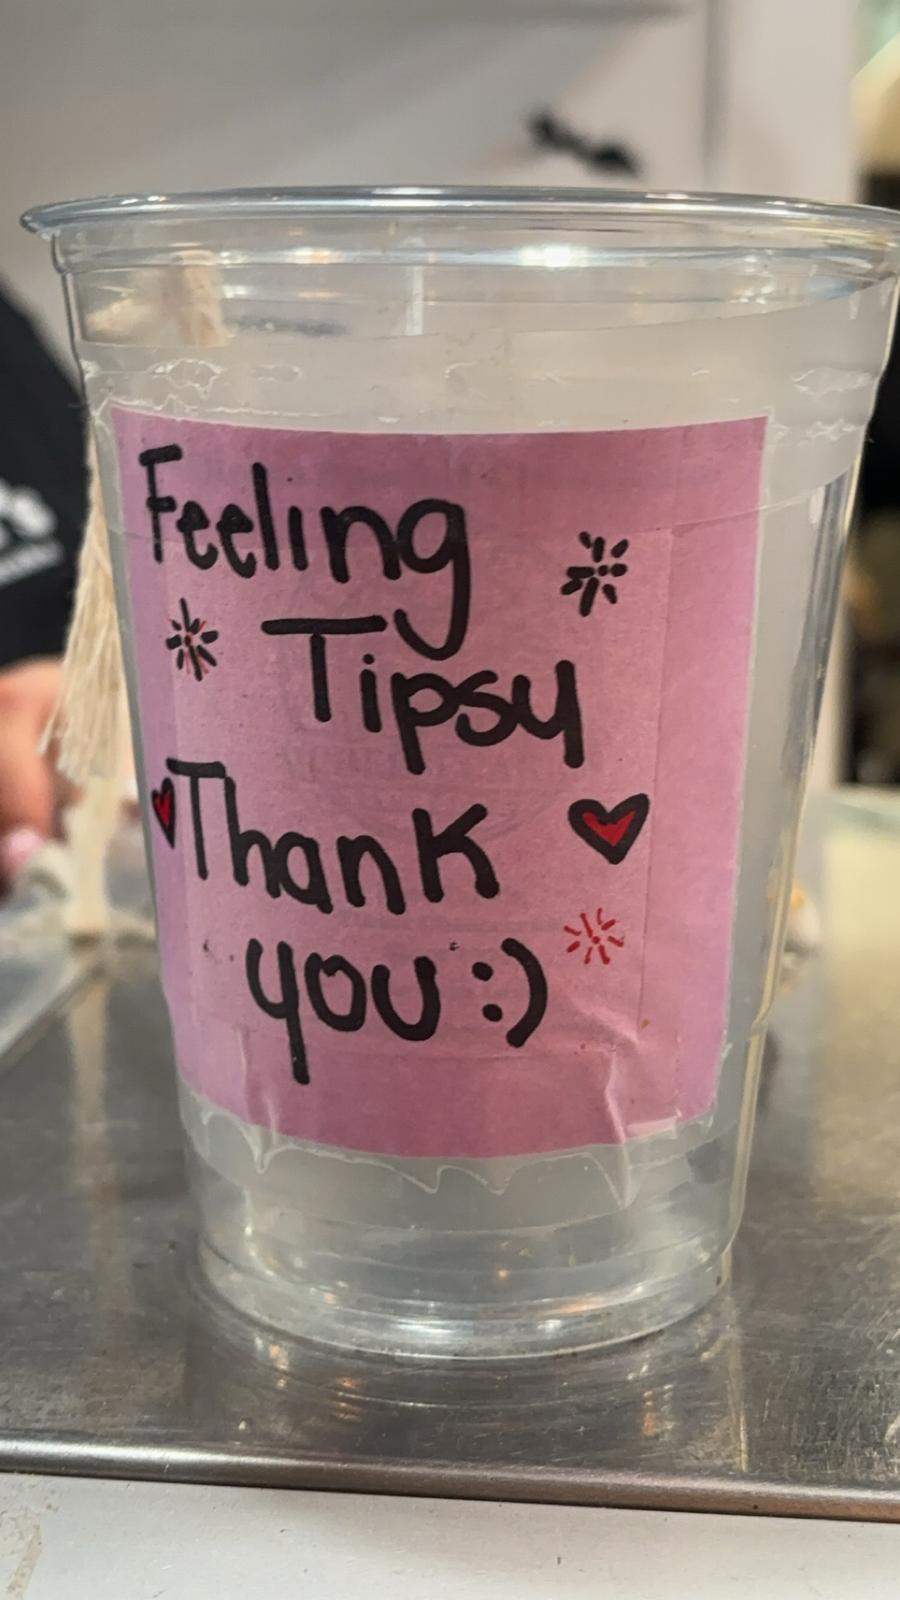 Feeling
Tipsy
Thank
you :)